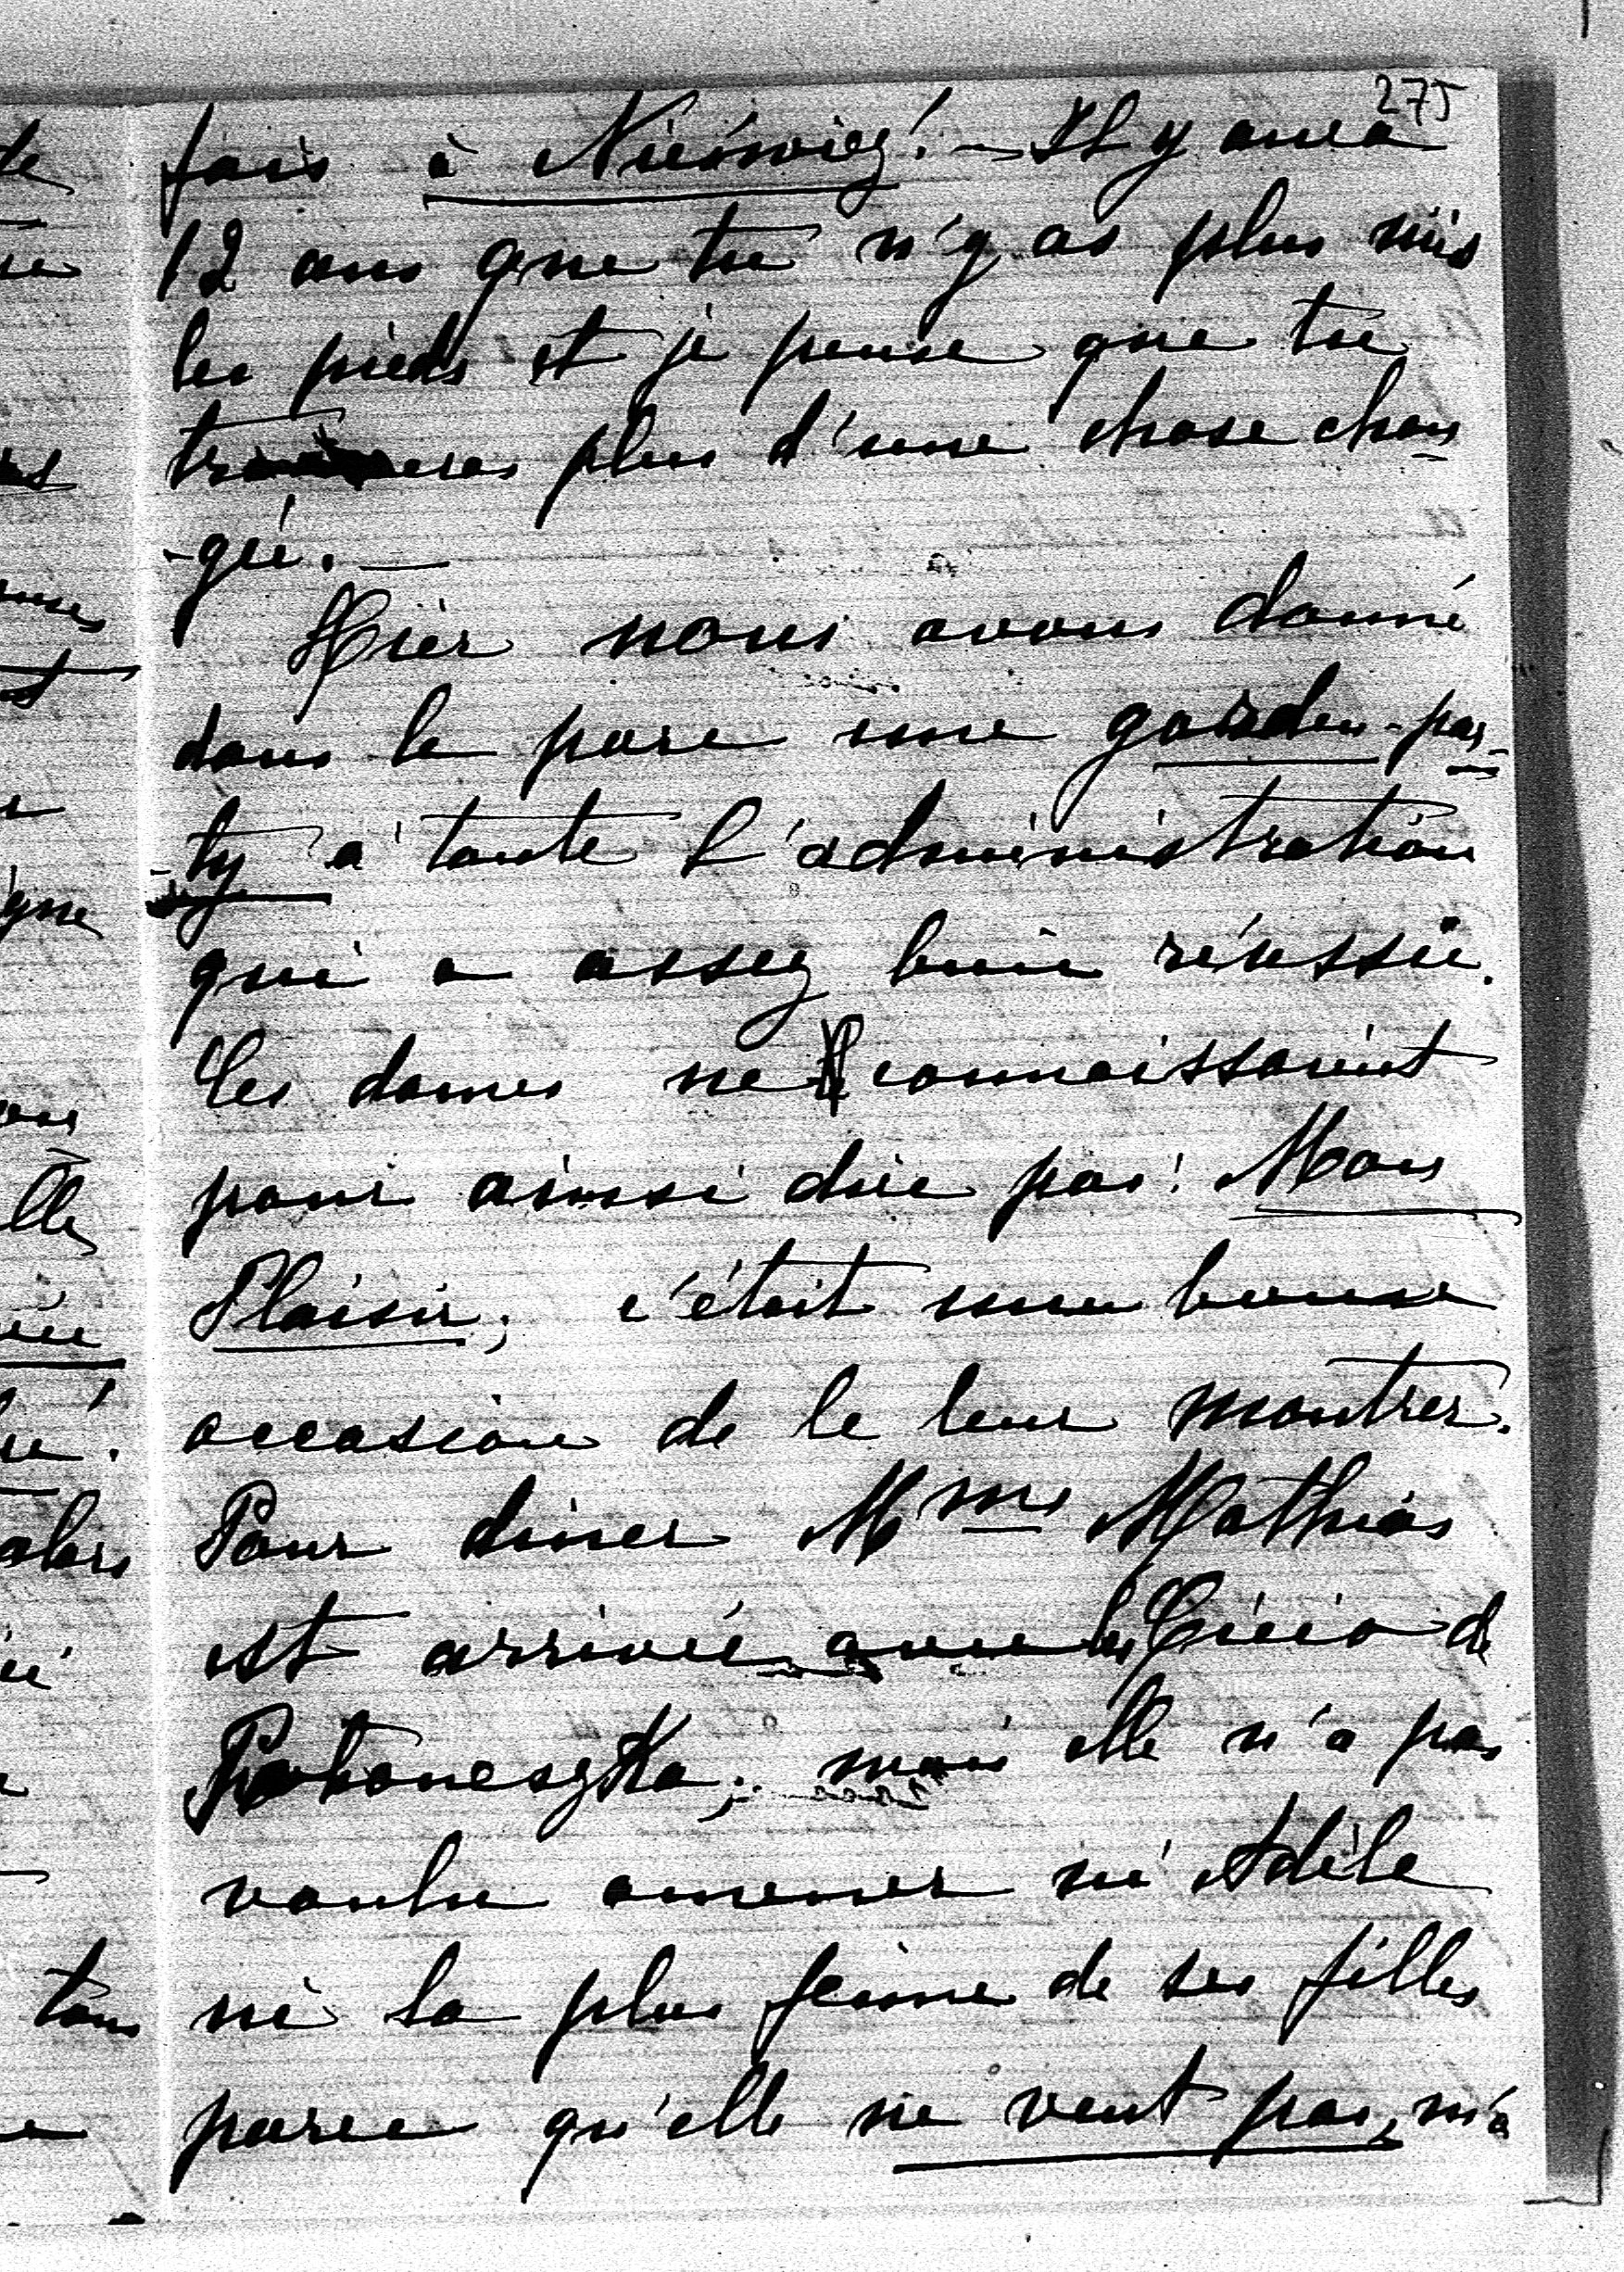 275
fois à Nieśwież! – Il y aura
12 ans que tu n'y as plus mis
les pieds et je pense que tu
trouveras plus d'une chose chan
-gée. —
Hier nous avons donné
dans le parc une garden-par-
-ty à toute l'administration
qui a assez bien réussie.
Les dames ne connaissaient
pour ainsi dire pas! Mon
Plaisir; c'était une bonne
occasion de le leur montrer.
Pour diner Mme Mathias
est arrivée avec les de
mais elle n'a pas
voulu amener ni Adèle
ni la plus jeune de ses filles
parce qu'elle ne veut pas, m'a